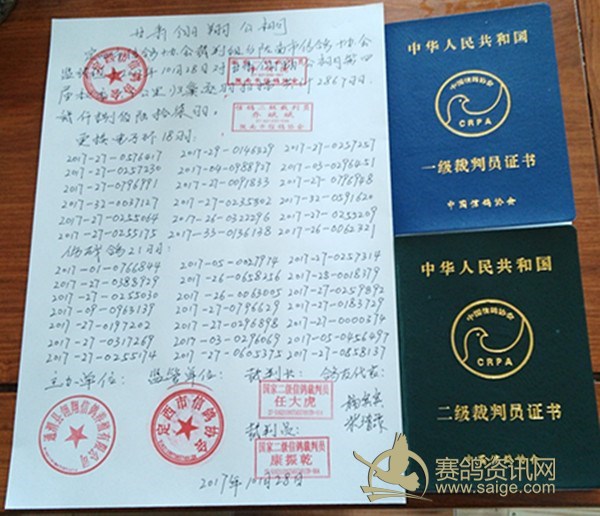 甘肃翎翔公棚
10月28日
2867羽
更换电子环18羽:
2017-27-0576417 2017-29-0146529 2017-27-0257257
2017-27-0257230 2017-04-0988927 2017-03-0296451
2017-27-0796991 2017-27-0091833 2017-27-0796948
2017-32-0037127 2017-27-0235802 2017-32-0591620
2017-27-0255064 2017-26-0322296 2017-27-0255209
2017-27-0255175 2017-33-0136138 2017-26-0062321
伤残鸽21羽:
2017-01-0766844 2017-05-0027974 2017-27-0257214
2017-27-0388929 2017-26-0658256 2017-28-0018179
2017-27-0255030 2017-26-0063005 2017-27-0259892
2017-09-0963139 2017-27-0796629 2017-27-0183729
2017-27-0197202 2017-27-0296898 2017-27-0000374
2017-27-0317269 2017-03-0296069 2017-05-0456497
2017-27-0255174 2017-26-0605375 2017-27-0858137
主办单位: 监管单位: 裁判长: 鸽友代表:
国家二级信鸽裁判员
任大虎
定西市信鸽协会
裁判员:
国家二级信鸽裁判员
康振乾
2017年10月28日
信鸽二级裁判员
中华人民共和国
中国信鸽协会
CRPA
一级裁判员证书
中国信鸽协会
中华人民共和国
中国信鸽协会
CRPA
二级裁判员证书
中国信鸽协会
赛鸽资讯网
www.saige.com